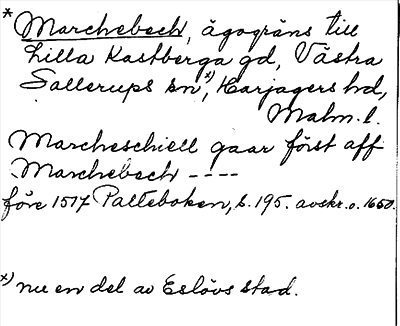 * Marchebech, ägogräns till
Lilla Kastberga gd, Västra
Sallerups sn x), Harjagers hd,
Malm. l.
Marcheschiell gaar först aff
Marchebech ----
före 1517 Palteboken, s. 195. avskr. o. 1650.
x) nu en del av Eslövs stad.